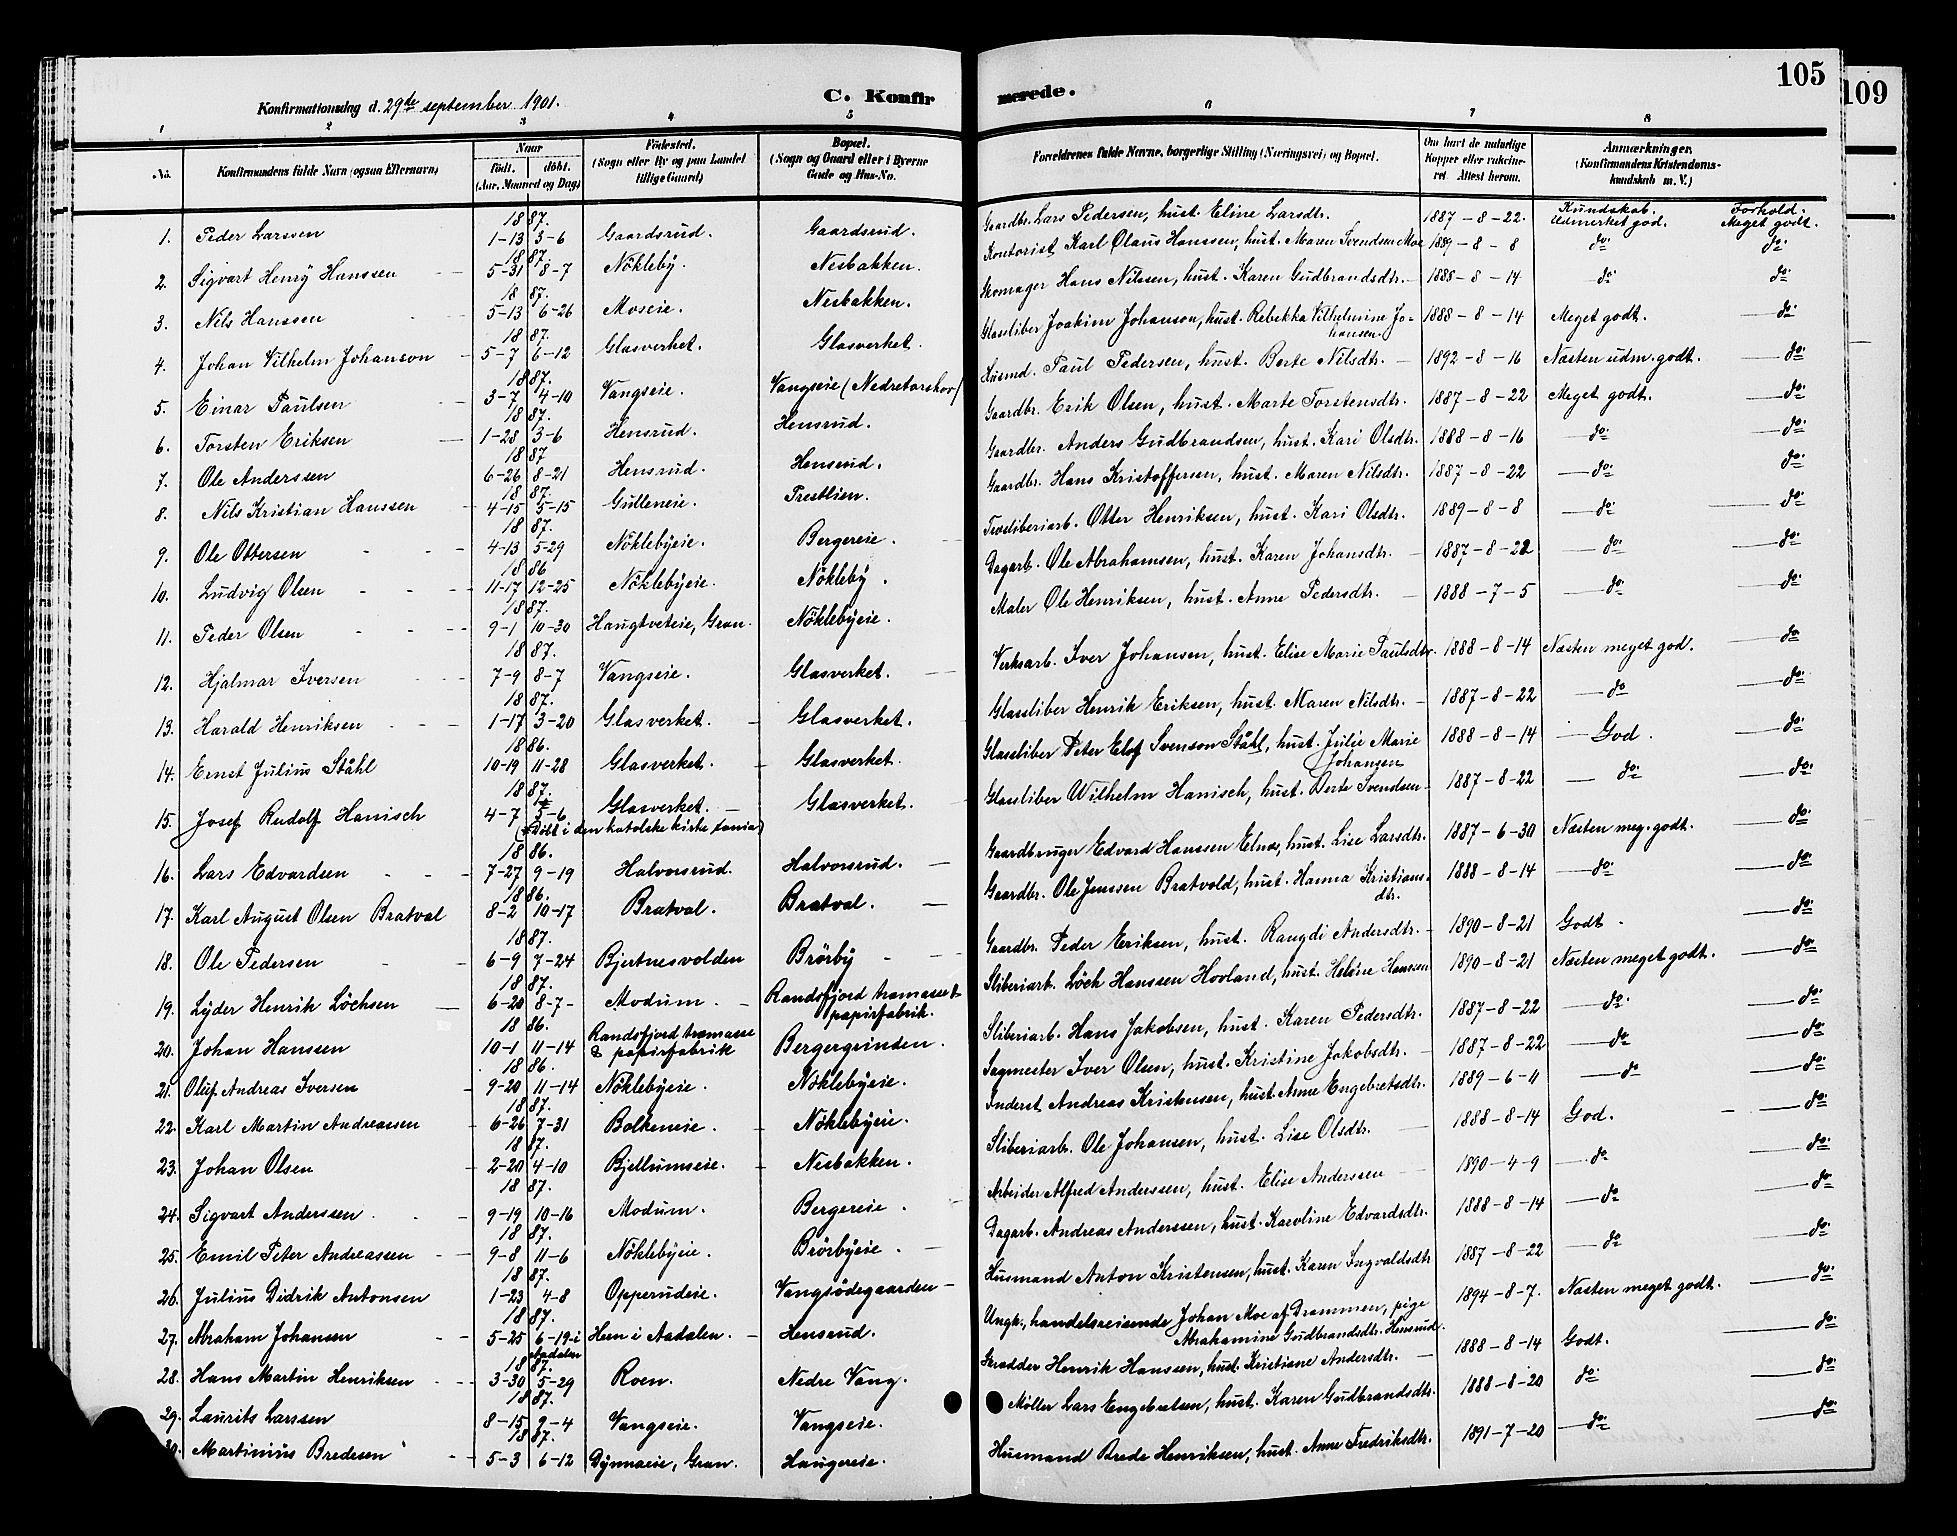 105
109
Konfirmationsdag d. 29de september 1901.
C. Konfirmerede.
1 2 3 4 5 6 7 8
No.
Konfirmandens fulde Navn (ogsaa Efternavn)
Naar
födt. döbt.
(Aar, Maaned og Dag)
Födested.
(Sogn eller By og paa Landet tillige Gaard)
Bopæl.
(Sogn og Gaard eller i Byerne Gade og Hus-No.
Forældrenes fulde Navne, borgerlige Stilling (Næringsvei) og Bopæl.
Om havt de naturlige Kopper eller vaccineret. Attest herom.
Anmærkninger.
(Konfirmandens Kristendomskundskab m. V.)
Kundskab. Forhold.
1. Peder Larssen 1887. 1-13 3-6 Gaardsrud. Gaardsrud. Gaardbr. Lars Pedersen, hust. Eline Larsdtr. 1887-8-22. Udmerket god. Meget godt.
2. Sigvart Henry Hanssen 1887. 5-31 8-7 Nökleby. Nesbakken. Kontorist Karl Olaus Hanssen, hust. Maren Svendsen Moe 1889-8-8 do. do.
3. Nils Hanssen 1887. 5-13 6-26 Moseie. Nesbakken. Skomager Hans Nilssen, hust. Karen Gudbrandsdtr. 1888-8-14 do. do.
4. Johan Vilhelm Johanson 1887. 5-7 6-12 Glasverket. Glasverket. Glassliber Joakim Johanson, hust. Rebekka Vilhelmine Johansen. 1888-8-14 Meget godt. do.
5. Einar Paulsen 1887. 3-7 4-10 Vangseie. Vangseie (Nedretorskov) Husmd. Paul Pedersen, hust. Berte Nilsdtr. 1892-8-16 Næsten udm. godt. do.
6. Torsten Eriksen 1887. 1-28 3-6 Hensrud. Hensrud. Gaardbr. Erik Olsen, hust. Marte Torstensdtr. 1887-8-22 Meget godt. do.
7. Ole Anderssen 1887 6-26 8-21 Hensrud. Hensrud. Gaardbr. Anders Gudbrandsen, hust. Kari Olsdtr. 1888-8-16 do. do.
8. Nils Kristian Hanssen 1887. 4-15 5-15 Gulleneie. Prestlien. Gaardbr. Hans Kristoffersen, hust. Maren Nilsdtr. 1887-8-22 do. do.
9. Ole Ottersen 1887. 4-13 5-29 Nöklebyeie. Bergereie. Træsliberiarb. Otter Henriksen, hust. Kari Olsdtr. 1889-8-8 do. do.
10. Ludvig Olsen 1886 11-17 12-25 Nöklebyeie. Nökleby. Dagarb. Ole Abrahamsen, hust. Karen Johansdtr. 1887-8-22 do. do.
11. Peder Olsen 1887. 9-1 10-30 Haugtveteie, Gran. Nöklebyeie. Maler Ole Henriksen, hust. Anne Pedersdtr. 1888-7-5 do. do.
12. Hjalmar Iversen 1887. 7-9 8-7 Vangseie. Glasverket. Verksarb. Iver Johansen, hust. Elise Marie Paulsdtr. 1888-8-14 Næsten meget god. do.
13. Harald Henriksen 1887. 1-17 3-20 Glasverket. Glasverket. Glassliber Henrik Eriksen, hust. Maren Nilsdtr. 1887-8-22 do do.
14. Ernst Julius Ståhl 1886. 10-19 11-28 Glasverket. Glasverket. Glassliber Peter Elof Svenson Ståhl, hust. Julie Marie Johansen 1888-8-14 God. do.
15. Josef Rudolf Hanisch 1887. 4-7 5-6 Glasverket. Glasverket. Glassliber Wilhelm Hanisch, hust. Berte Svendsen 1887-8-22 do. do.
(Döbt i den katolske kirke
16. Lars Edvardsen 1886. 7-27 9-19 Halvorsrud. Halvorsrud. Gaardbruger Edvard Hanssen, hust. Lise Larsdtr. 1887-6-30 Næsten meg. godt. do.
17. Karl August Olsen Bratval 1886. 8-2 10-17 Bratval. Bratval. Gaardbr. Ole Jenssen Bratvold, hust. Hanna Kristiansdtr. 1888-8-14 do. do.
18. Ole Pedersen 1887. 6-9 7-24 Bjertnesvolden Brörby Gaardbr. Peder Eriksen, hust. Rangdi Andersdtr. 1890-8-21 Godt. do.
19. Lyder Henrik Löchsen 1887. 6-20 8-7 Modum. Randsfjord træmasse & papirfabrik. Sliberiarb. Löch Hanssen Hovland, hust. Helene Hanssen 1890-8-21 Næsten meget godt. do.
20. Johan Hanssen 1886. 10-1 11-14 Randsfjord træmasse & papirfabrik Bergergrinden. Sliberiarb. Hans Jakobsen, hust. Karen Pedersdtr. 1887-8-22 do. do.
21. Oluf Andreas Iversen 1886. 9-20 11-14 Nöklebyeie. Nöklebyeie. Sagmester Iver Olsen, hust. Kristine Jakobsdtr. 1887-8-22 do do.
22. Karl Martin Andreassen 1887. 6-26 7-31 Bolkeneie. Nöklebyeie. Inderst Andreas Kristensen, hust. Anne Engebretsdtr. 1889-6-11 do do.
23. Johan Olsen 1887. 2-20 4-10 Bjellumseie. Nesbakken. Sliberiarb. Ole Johansen, hust. Lise Olsdtr. 1888-8-14 God. do.
24. Sigvart Anderssen. 1887. 9-19 10-16 Modum. Bergereie. Arbeider Alfred Anderssen, hust. Elise Anderssen 1890-4-9 do do.
25. Emil Peter Andreassen 1887. 9-8 11-6 Nöklebyeie. Brörbyeie. Dagarb. Andreas Anderssen, hust. Karoline Edvardsdtr. 1888-8-14 do do.
26. Julius Didrik Antonsen 1887. 1-23 4-8 Opperudeie. Vangsödegaarden Husmand Anton Kristensen, hust. Karen Ingvaldsdtr 1887-8-22 do do.
27. Abraham Johansen 1887. 5-25 6-19 i Aadalen Hem i Aadalen. Hensrud. Ungk., handelsreisende Johan Moe af Drammen, pige Abrahamine Gudbrandsdtr. Hensrud. 1894-8-7. Næsten meget godt. do.
28. Hans Martin Henriksen 1887. 3-30 5-29 Roen. Nedre Vang. Skrædder Henrik Hanssen, hust. Kristiane Andersdtr. 1888-8-14 Godt. do.
29. Laurits Larssen 1887. 8-15 9-4 Vangseie. Vangseie. Møller Lars Engebretsen, hust. Karen Gudbrandsdtr. 1888-8-20 do. do.
30. Martinius Bredesen 1887. 5-3 6-12 Dynnaeie, Gran. Haugereie. Husmand Brede Henriksen, hust. Anne Fredriksdtr. 1891-7-20 do. do.